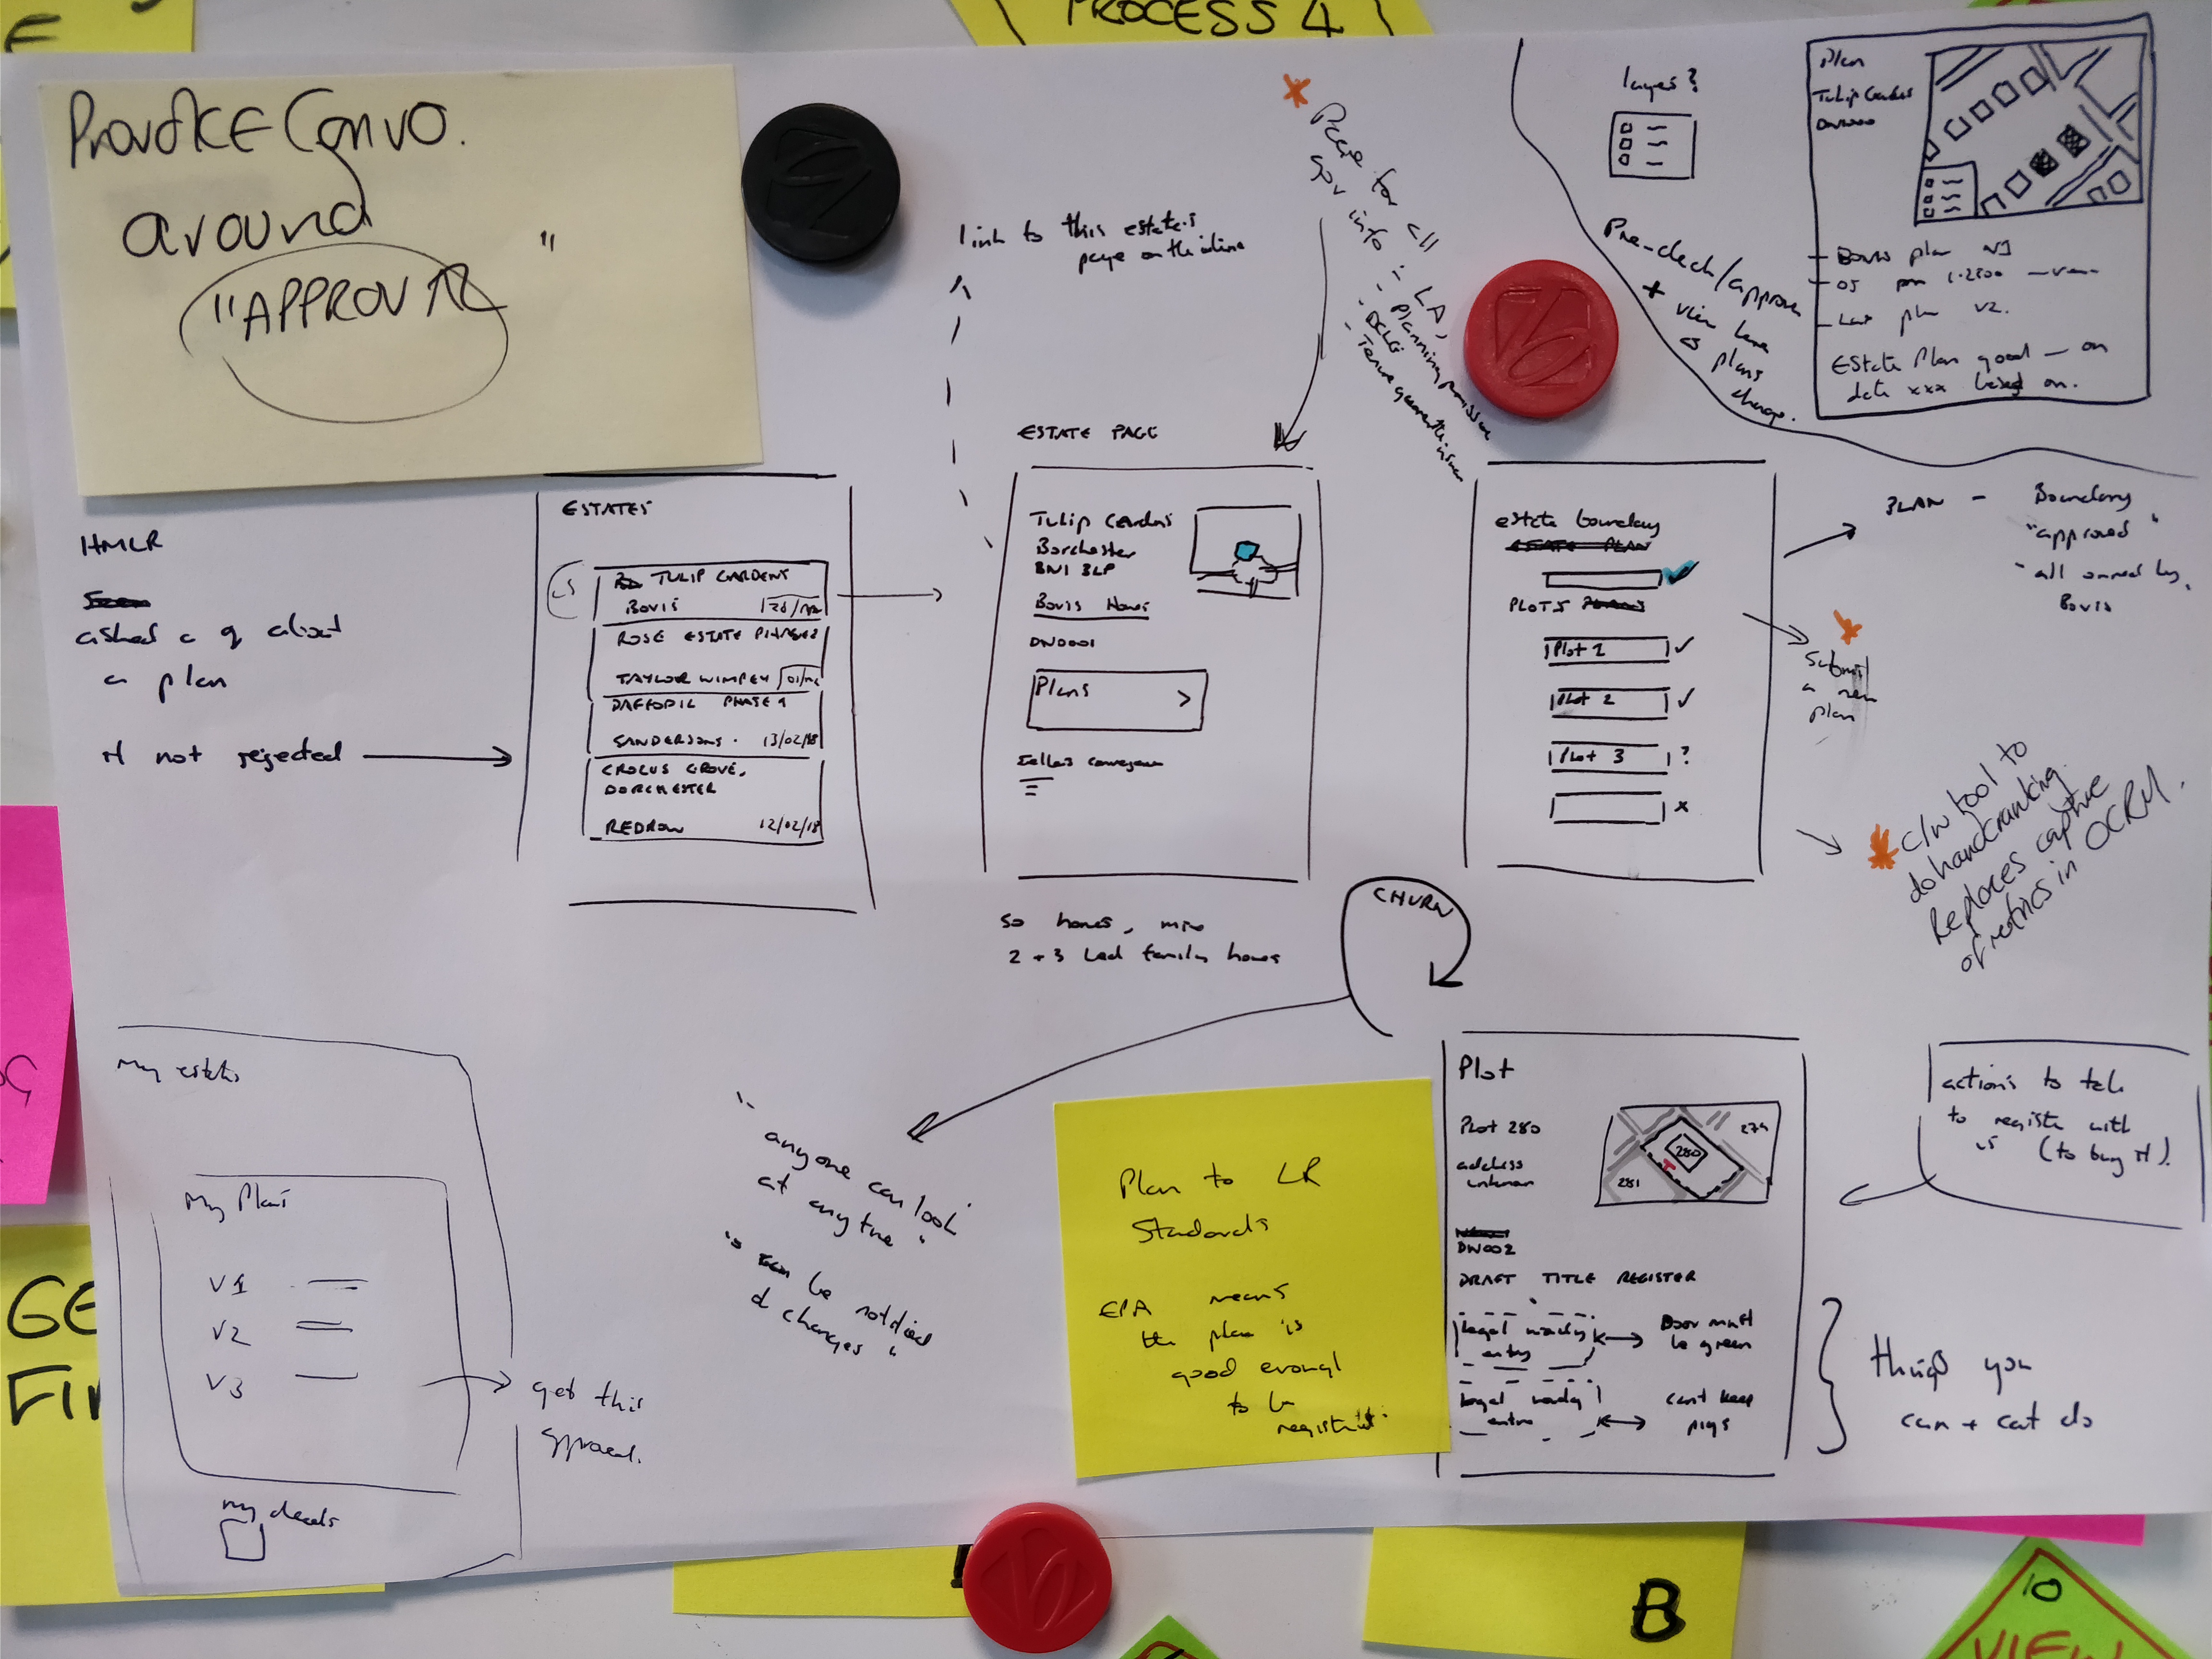 PROCESS 4
PROVOKE CONVO.
around
"APPROVAL"
"
link to this estates
page on the
Place for all
gov info :-
- LA,
- Planning permission
- DCLG
layers?
Pre-check/approve
+ view
plans
change.
Plan
Tulip Gardens
DN1000
Bovis plan V1
OS
plan V2.
Estate Plan good — on
date xxx based on.
HMLR
asked a q about
a plan
it not rejected
ESTATES
TULIP GARDENS
BOVIS
ROSE ESTATE PHASE 2
TAYLOR WIMPEY
DAFFODIL PHASE 9
SANDERSONS. 13/02/18
CROCUS GROVE,
DORCHESTER
REDROW 12/02/18
ESTATE PAGE
Tulip Gardens
Borchester
BN1 3LP
Bovis Homes
DN0001
Plans >
Sellers conveyancer
50 homes, mix
2 + 3 bed family homes
estate boundary
ESTATE PLAN
PLOTS PLANS
Plot 1 ✓
Plot 2 ✓
Plot 3 ?
x
PLAN - Boundary
"approved"
- all owned by
Bovis
Submit
a new
plan
c/w tool to
do handcranking.
Replaces capture
of metrics in OCRM.
CHURN
My estates
My Plans
V1
V2
V3
get this
approved.
my deeds
"anyone can look
at any time"
"can be notified
of changes"
Plan to LR
Standards
EPA means
the plan is
good enough
to be
registered.
Plot
Plot 280
address
unknown
280
279
281
DN002
DRAFT TITLE REGISTER
legal wordy
entry
Door must
be green
legal wordy
entry
can't keep
pigs
actions to take
to register with
us (to buy it).
things you
can + can't do
GE
FI
B
10
VIEW